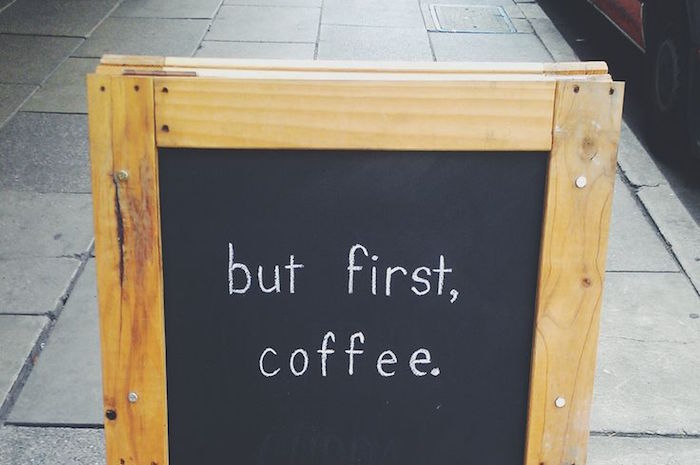 but first,
coffee.